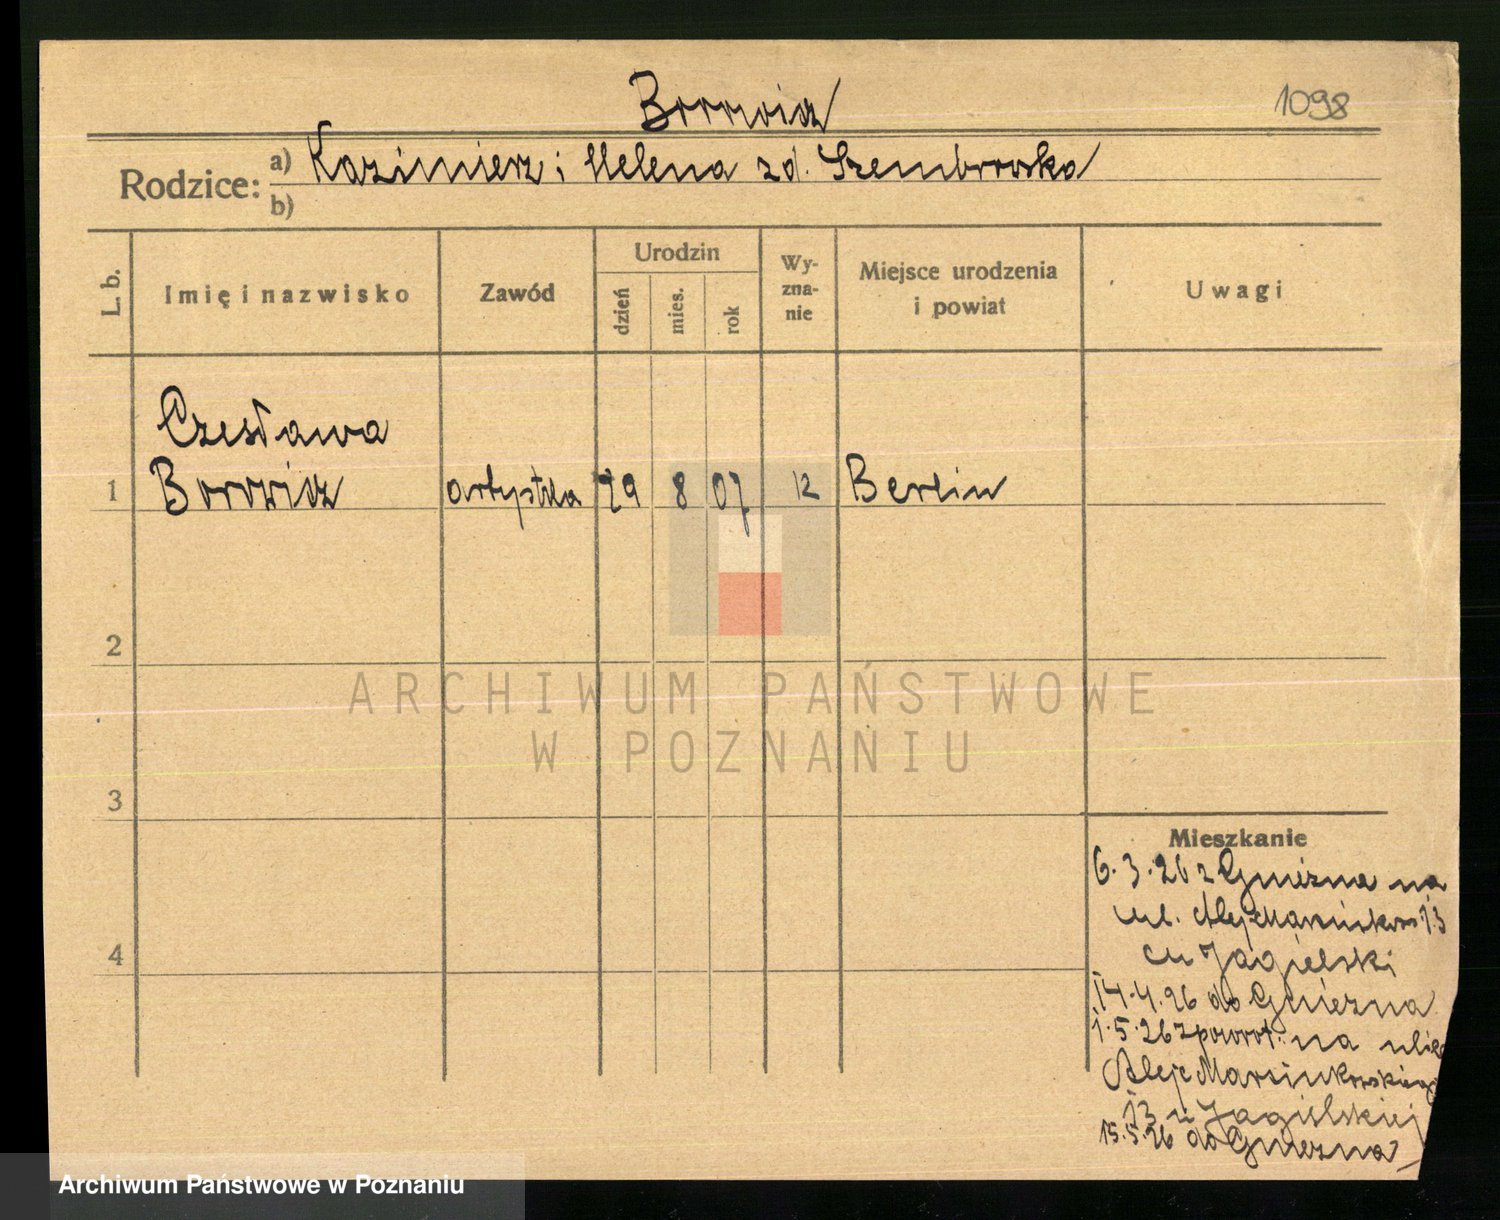 Borowicz
1098
Rodzice:
a) Kazimierz i Helena z d. Szembrowska
b)
L. b.
Imię i nazwisko
Zawód
Urodzin
dzień
mies.
rok
Wy-
zna-
nie
Miejsce urodzenia
i powiat
Uwagi
Czesława
1 Borowicz artystka 29 8 07 Berlin
2
3
4
Mieszkanie
6.3.26 z Gniezna na
ul. Aleje Marcinkows 13
Jagielski
14.4.26 do Gniezna
1.5.26 z powrot. na
Aleje Marcinkowskiego
13 u Jagielskiej
15.5.26 do Gniezna
ARCHIWUM PAŃSTWOWE
W POZNANIU
Archiwum Państwowe w Poznaniu